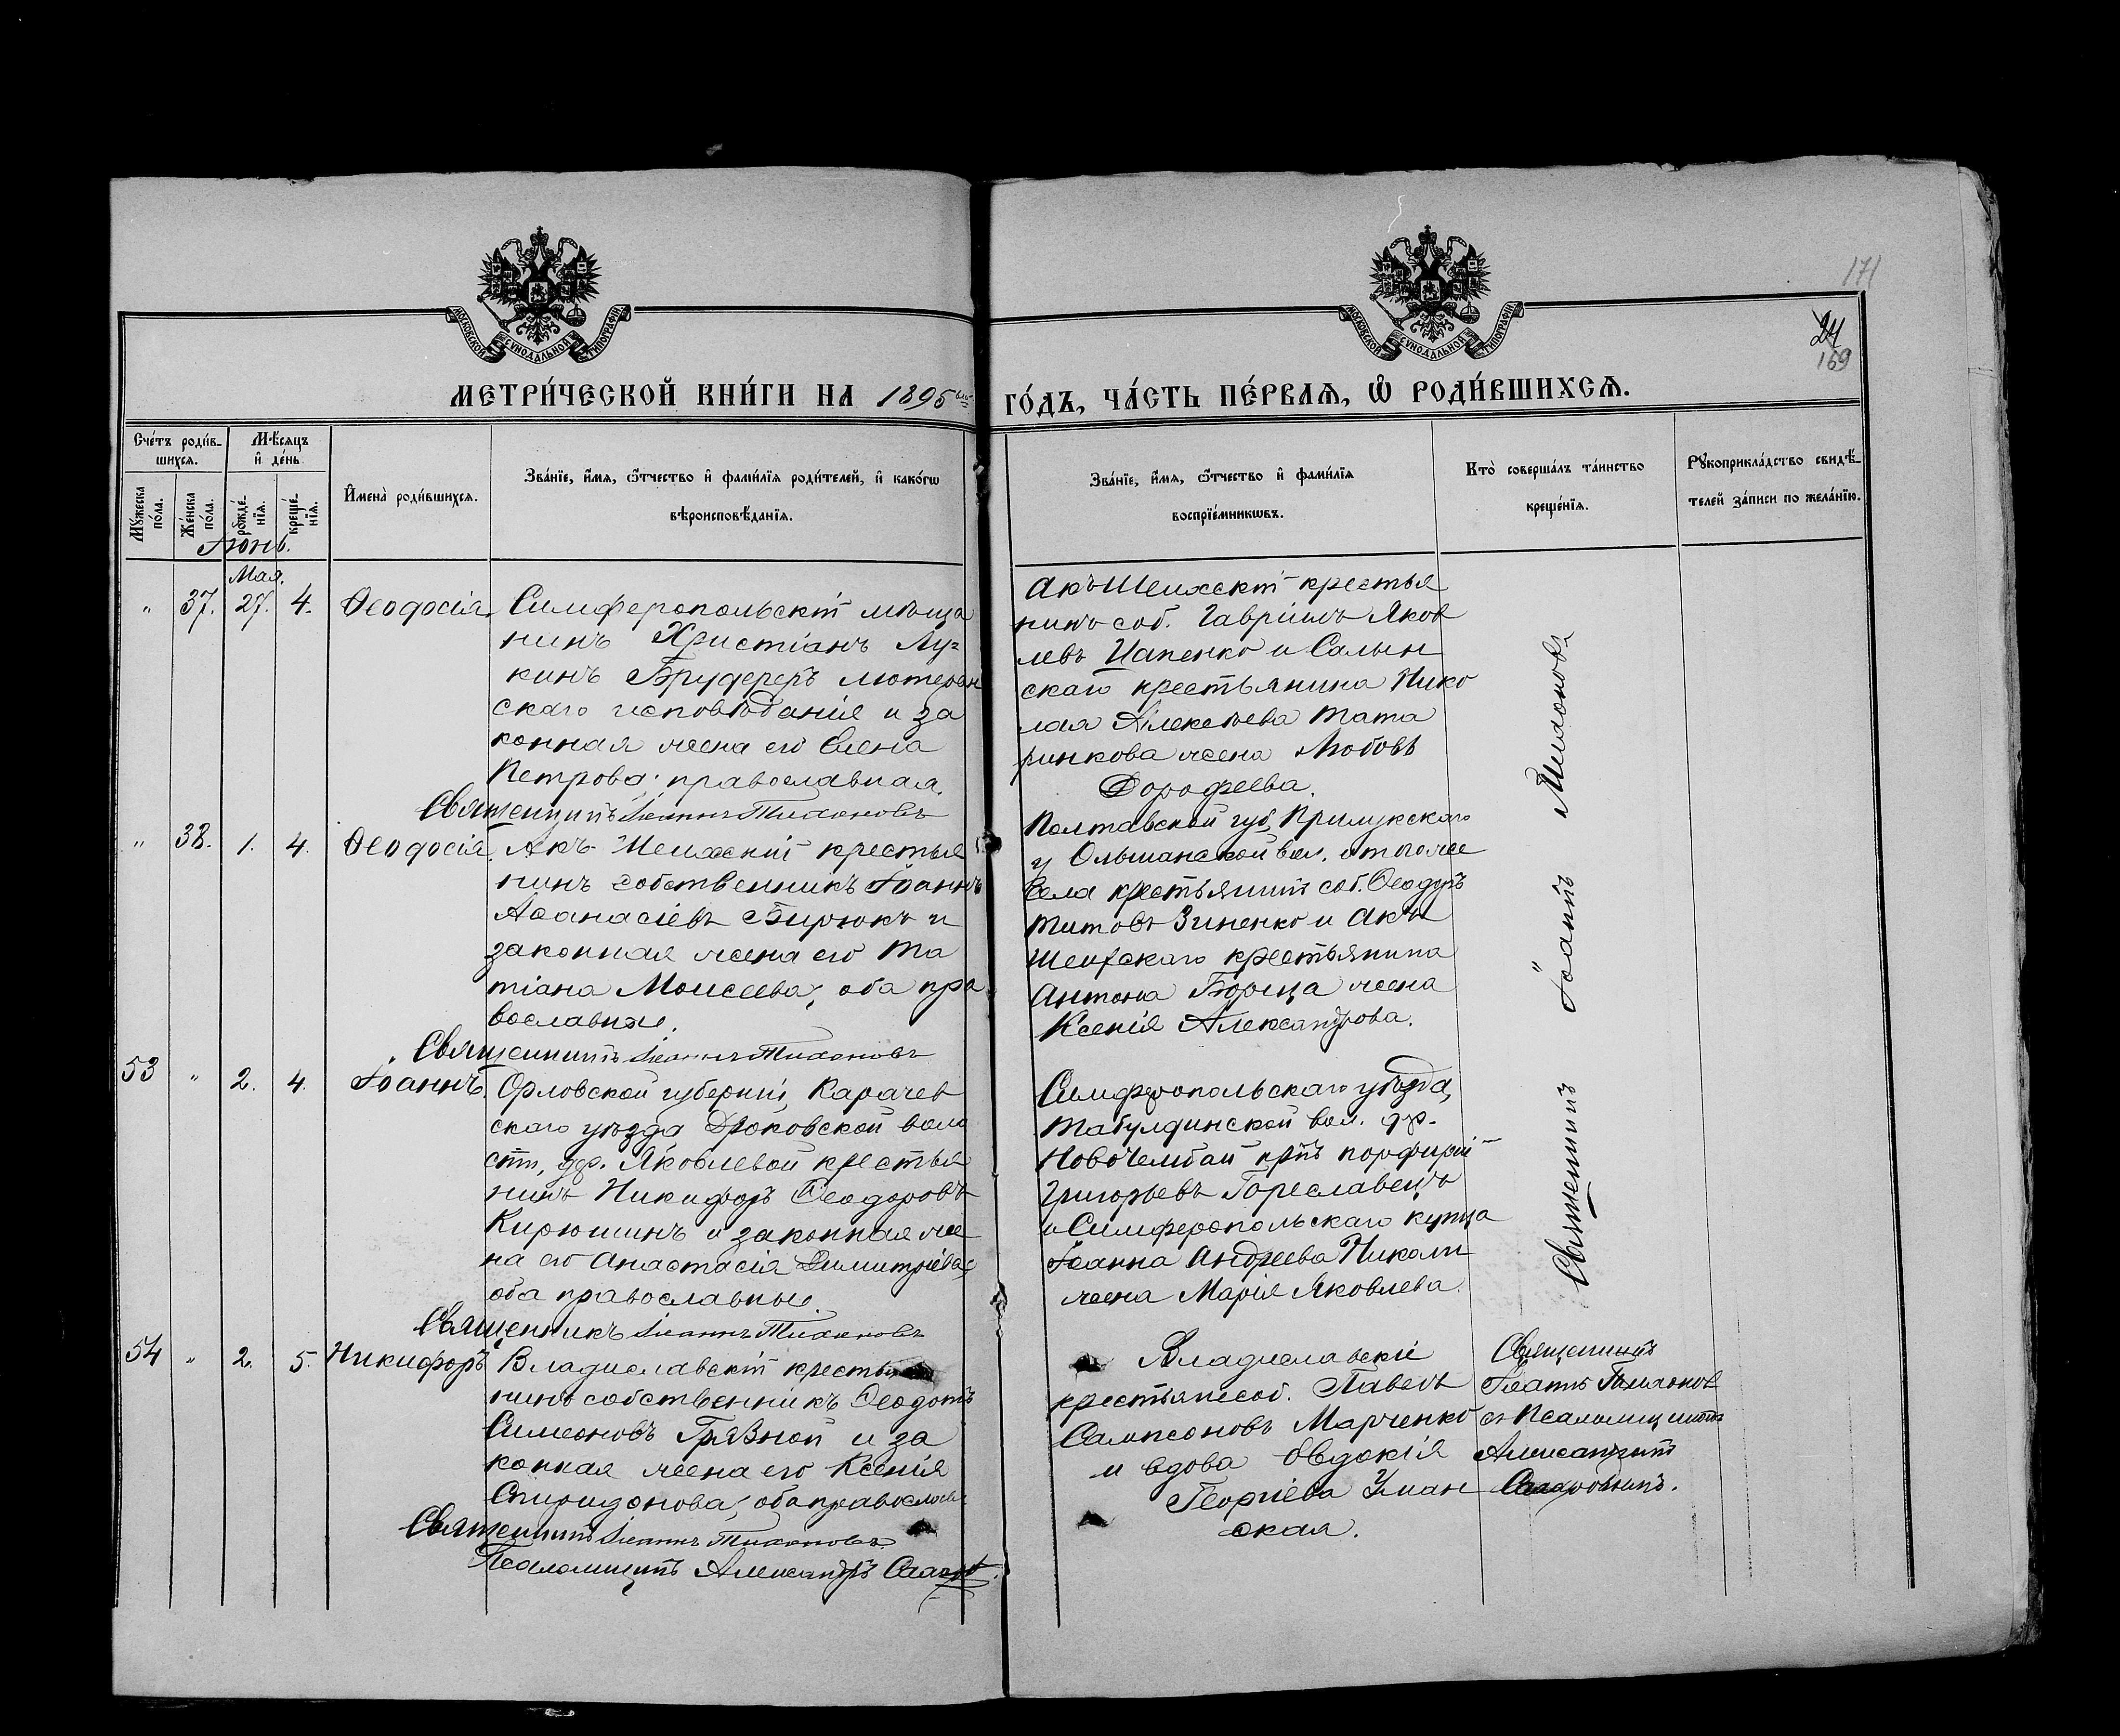 171
24
169
МОСКОВСКОЙ СѴНОДАЛЬНОЙ ТИПОГРАФІИ
МОСКОВСКОЙ СѴНОДАЛЬНОЙ ТИПОГРАФІИ
МЕТРИ́ЧЕСКОЙ КНИ́ГИ НА 1895
ГО́ДЪ, ЧА́СТЬ ПЕ́РВАѦ, Ѡ҆ РОДИ́ВШИХСѦ.
Сче́тъ роди́в-
шихсѧ.
Мѣ́сѧцъ
и҆ де́нь
Мꙋ́жеска
по́ла.
Же́нска
по́ла.
рожде́-
нїѧ.
креще́-
нїѧ.
И҆мена̀ роди́вшихсѧ.
Зва́нїе, и҆́мѧ, ѻ҆́тчество и҆ фами́лїѧ роди́телей, и҆ како́гѡ
вѣроисповѣ́данїѧ.
Зва́нїе, и҆́мѧ, ѻ҆́тчество и҆ фами́лїѧ
воспрїе́мникѡвъ.
Кто̀ соверша́лъ та́инство
креще́нїѧ.
Рꙋкоприкла́дство свидѣ́-
телей за́писи по жела́нїю.
Іюнь.
Мая.
" 37. 27. 4. Ѳеодосія
Симферопольскій мѣща
нинъ Христіанъ Лу=
кинъ Брудереръ лютеран
скаго исповѣданія и за
конная жена его Елена
Петрова; православная.
Священникъ Іоаннъ Тихоновъ
Акъ-Шейхскій крестья
нинъ соб. Гавріилъ Яков
левъ Цапенко и Салын
скаго крестьянина Нико
лая Алексѣева Тата
ринкова жена Любовь
Дорофеева.
" 38. 1. 4. Ѳеодосія.
Акъ-Шейхскій крестья
нинъ собственникъ Іоаннъ
Аѳанасіевъ Бирюкъ и
законная жена его Та
тіана Моисеева, оба пра
вославные.
Священникъ Іоаннъ Тихоновъ
Полтавской губ. Прилукскаго
у Ольшанской вол. и того же
села крестьянинъ соб. Ѳеодуръ
Титовъ Зиненко и Акъ
Шейхскаго крестьянина
Антона Борща жена
Ксенія Александрова.
53 " 2. 4. Іоаннъ.
Орловской губерніи, Карачев
скаго уѣзда Дроковской воло
сти, др. Яковлевой крестья
нинъ Никифоръ Ѳеодоровъ
Кирюшинъ и законная же
на его Анастасія Димитріева,
оба православные.
Священникъ Іоаннъ Тихоновъ
Симферопольскаго уѣзда,
Табулдинской вол. др.
Новочембай кр-нъ Порфирій
Григорьевъ Гореславецъ
и Симферопольскаго купца
Іоанна Андреева Николи
жена Марія Яковлева.
Священникъ Іоаннъ Тихоновъ
54 " 2. 5. Никифоръ
Владиславскій крестья
нинъ собственникъ Ѳеодотъ
Симеоновъ Грязной и за
конная жена его Ксенія
Спиридонова, оба православн
Священникъ Іоаннъ Тихоновъ
Псаломщикъ Александръ
Владиславскіе
крестьяне соб. Павелъ
Сампсоновъ Марченко
и вдова Евдокія
Георгіева Уман
ская.
Священникъ
Іоаннъ Тихоновъ
съ Псаломщикомъ
Александромъ